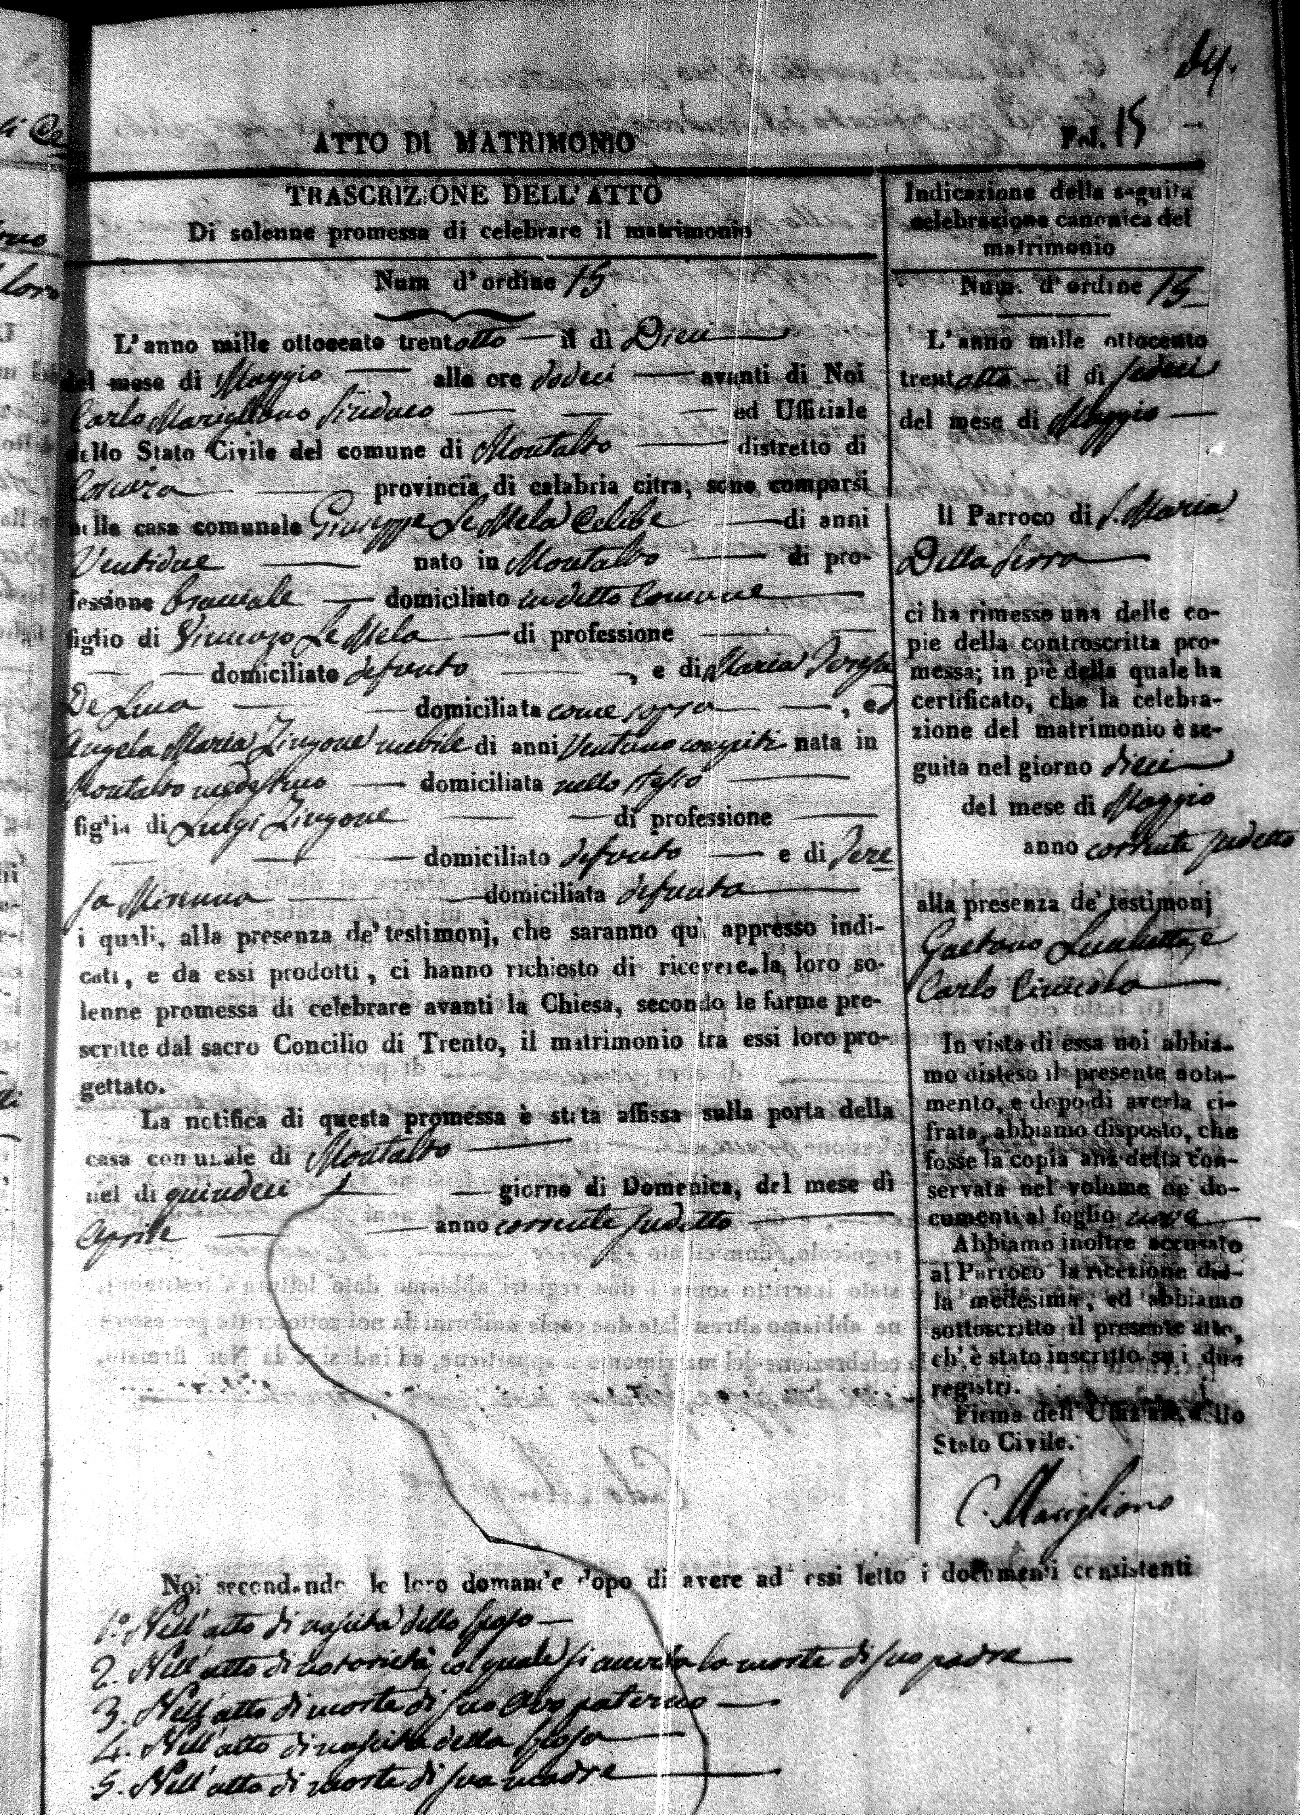 ATTO DI MATRIMONIO
Fol. 15
TRASCRIZIONE DELL'ATTO
Di solenne promessa di celebrare il matrimonio
Num d'ordine 15
L'anno mille ottocento trentotto — il dì Dieci
del mese di Maggio — alle ore dodeci — avanti di Noi
Carlo Marigliano Sindaco — ed Ufficiale
dello Stato Civile del comune di Montalto — distretto di
Cosenza — provincia di calabria citra, sono comparsi
nella casa comunale Giuseppe Le Mela Celibe — di anni
Ventidue — nato in Montalto — di pro-
fessione bracciale — domiciliato in detto Comune
figlio di Vincenzo Le Mela — di professione
domiciliato defunto — , e di Maria Teresa
De Luca — domiciliata come sopra — , ed
Angela Maria Zingone nubile di anni Ventuno compiti nata in
Montalto medesimo — domiciliata nello stesso
figlia di Luigi Zingone — di professione
domiciliato defunto — e di Tere
sa — domiciliata defunta
i quali, alla presenza de' testimonj, che saranno quì appresso indi-
cati, e da essi prodotti, ci hanno richiesto di ricevere la loro so-
lenne promessa di celebrare avanti la Chiesa, secondo le forme pre-
scritte dal sacro Concilio di Trento, il matrimonio tra essi loro pro-
gettato.
La notifica di questa promessa è stata affissa sulla porta della
casa comunale di Montalto
nel di quindeci — giorno di Domenica, del mese di
Aprile — anno corrente sudetto
Indicazione della seguita
celebrazione canonica del
matrimonio
Num. d'ordine 15
L'anno mille ottocento
trentotto — il di sedeci
del mese di Maggio —
Il Parroco di S. Maria
Della Serra
ci ha rimesso una delle co-
pie della controscritta pro-
messa; in piè della quale ha
certificato, che la celebra-
zione del matrimonio è se-
guita nel giorno dieci
del mese di Maggio
anno corrente sudetto
alla presenza de' testimonj
Gaetano e
Carlo
In vista di essa noi abbia-
mo disteso il presente nota-
mento, e dopo di averla ci-
frata, abbiamo disposto, che
fosse la copia anzidetta con-
servata nel volume de' do-
cumenti al foglio
Abbiamo inoltre accusato
al Parroco la ricezione del-
la medesima, ed abbiamo
sottoscritto il presente atto,
ch' è stato inscritto su i due
registri.
Firma dell' Uffiziale dello
Stato Civile.
C. Marigliano
Noi secondando le loro domande dopo di avere ad essi letto i documenti consistenti
1.º Nell'atto di nascita dello sposo
2. Nell'atto di notorietà col quale si accerta la morte di suo padre
3. Nell'atto di morte di suo Avo paterno
4. Nell'atto di nascita della sposa
5. Nell'atto di morte di sua madre